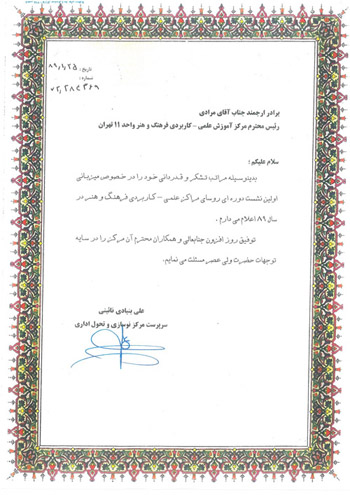 تاریخ: ۸۹,۱,۲۵
شماره:
برادر ارجمند جناب آقای مرادی
رئیس محترم مرکز آموزش علمی - کاربردی فرهنگ و هنر واحد ۱۱ تهران
سلام علیکم؛
بدینوسیله مراتب تشکر و قدردانی خود را در خصوص میزبانی
اولین نشست دوره ای روسای مراکز علمی - کاربردی فرهنگ و هنر در
سال ۸۹ اعلام می دارم .
توفیق روز افزون جنابعالی و همکاران محترم آن مرکز را در سایه
توجهات حضرت ولی عصر مسئلت می نمایم.
علی بنیادی نائینی
سرپرست مرکز نوسازی و تحول اداری